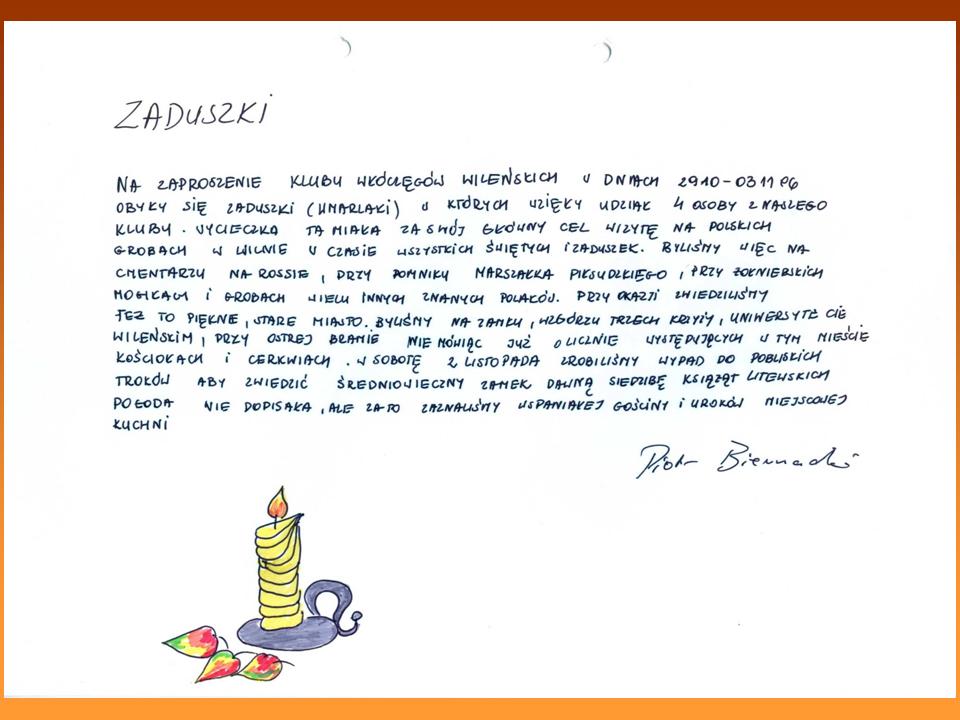 ZADUSZKI
NA ZAPROSZENIE KLUBU WŁÓCZĘGÓW WILEŃSKICH W DNIACH 29 10 - 03 11 96
OBYŁY SIĘ ZADUSZKI (UMARLAKI) W KTÓRYCH WZIĘŁY UDZIAŁ 4 OSOBY Z NASZEGO
KLUBU. WYCIECZKA TA MIAŁA ZA SWÓJ GŁÓWNY CEL WIZYTĘ NA POLSKICH
GROBACH W WILNIE W CZASIE WSZYSTKICH ŚWIĘTYCH I ZADUSZEK. BYLIŚMY WIĘC NA
CMENTARZU NA ROSSIE, PRZY POMNIKU MARSZAŁKA PIŁSUDZKIEGO, PRZY ŻOŁNIERSKICH
MOGIŁACH I GROBACH WIELU INNYCH ZNANYCH POLAKÓW. PRZY OKAZJI ZWIEDZILIŚMY
TEŻ TO PIĘKNE, STARE MIASTO. BYLIŚMY NA ZAMKU, WZGÓRZU TRZECH KRZYŻY, UNIWERSYTECIE
WILEŃSKIM, PRZY OSTREJ BRAMIE NIE MÓWIĄC JUŻ O LICZNIE WYSTĘPUJĄCYCH W TYM MIEŚCIE
KOŚCIOŁACH I CERKWIACH. W SOBOTĘ 2 LISTOPADA ZROBILIŚMY WYPAD DO POBLISKICH
TROKÓW ABY ZWIEDZIĆ ŚREDNIOWIECZNY ZAMEK DAWNĄ SIEDZIBĘ KSIĄŻĄT LITEWSKICH
POGODA NIE DOPISAŁA, ALE ZA TO ZAZNALIŚMY WSPANIAŁEJ GOŚCINY I UROKÓW MIEJSCOWEJ
KUCHNI
Piotr Biernacki